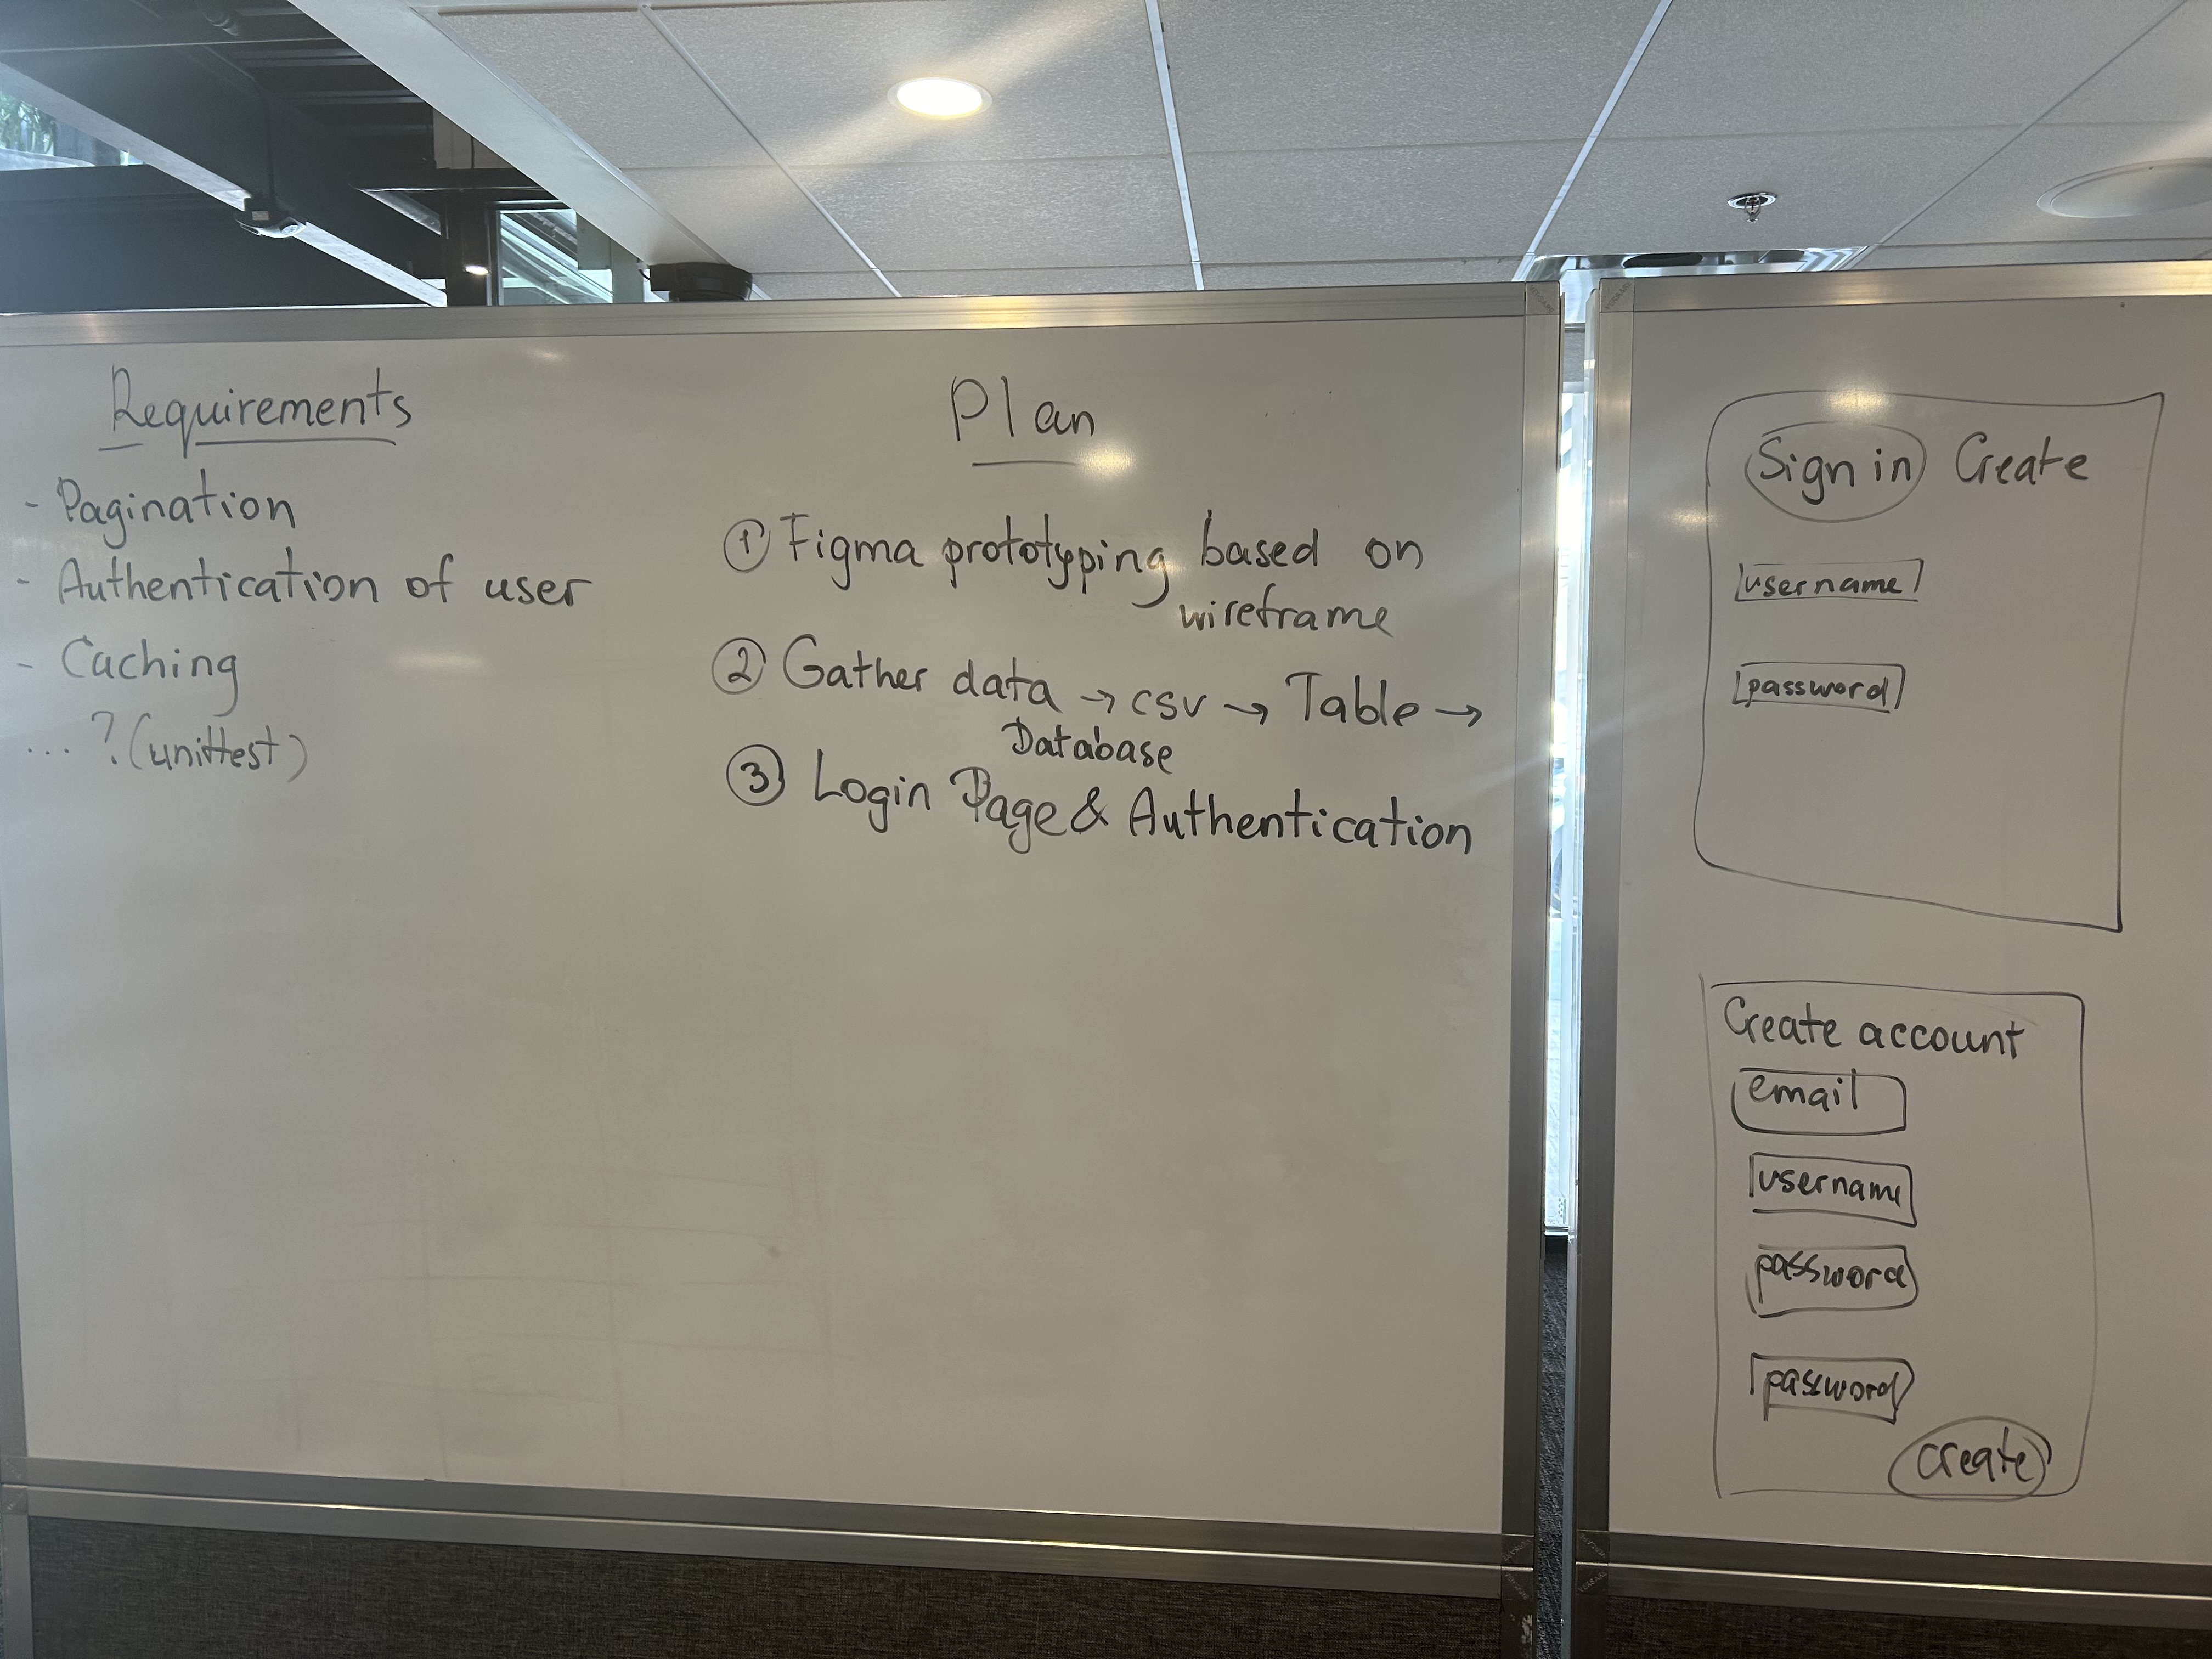 Requirements
- Pagination
- Authentication of user
- Caching
... ? (unittest)
Plan
① Figma prototyping based on
wireframe
② Gather data → csv → Table →
Database
③ Login Page & Authentication
Sign in Create
username
password
Create account
email
username
password
password
create